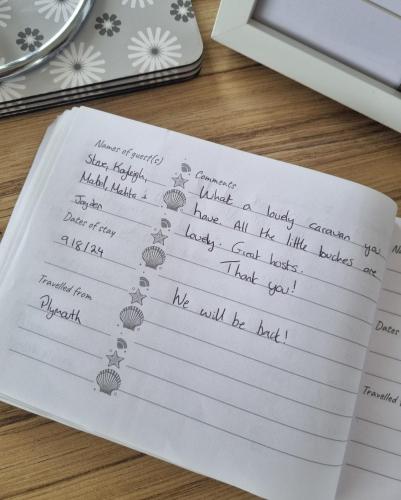 Names of guest(s)
Stax, Kayleigh,
Mabel, &
Jayden
Dates of stay
9/8/24
Travelled from
Plymouth
Comments
What a lovely caravan you
have. All the little touches are
lovely. Great hosts.
Thank you!
We will be back!
Dates
Travelled